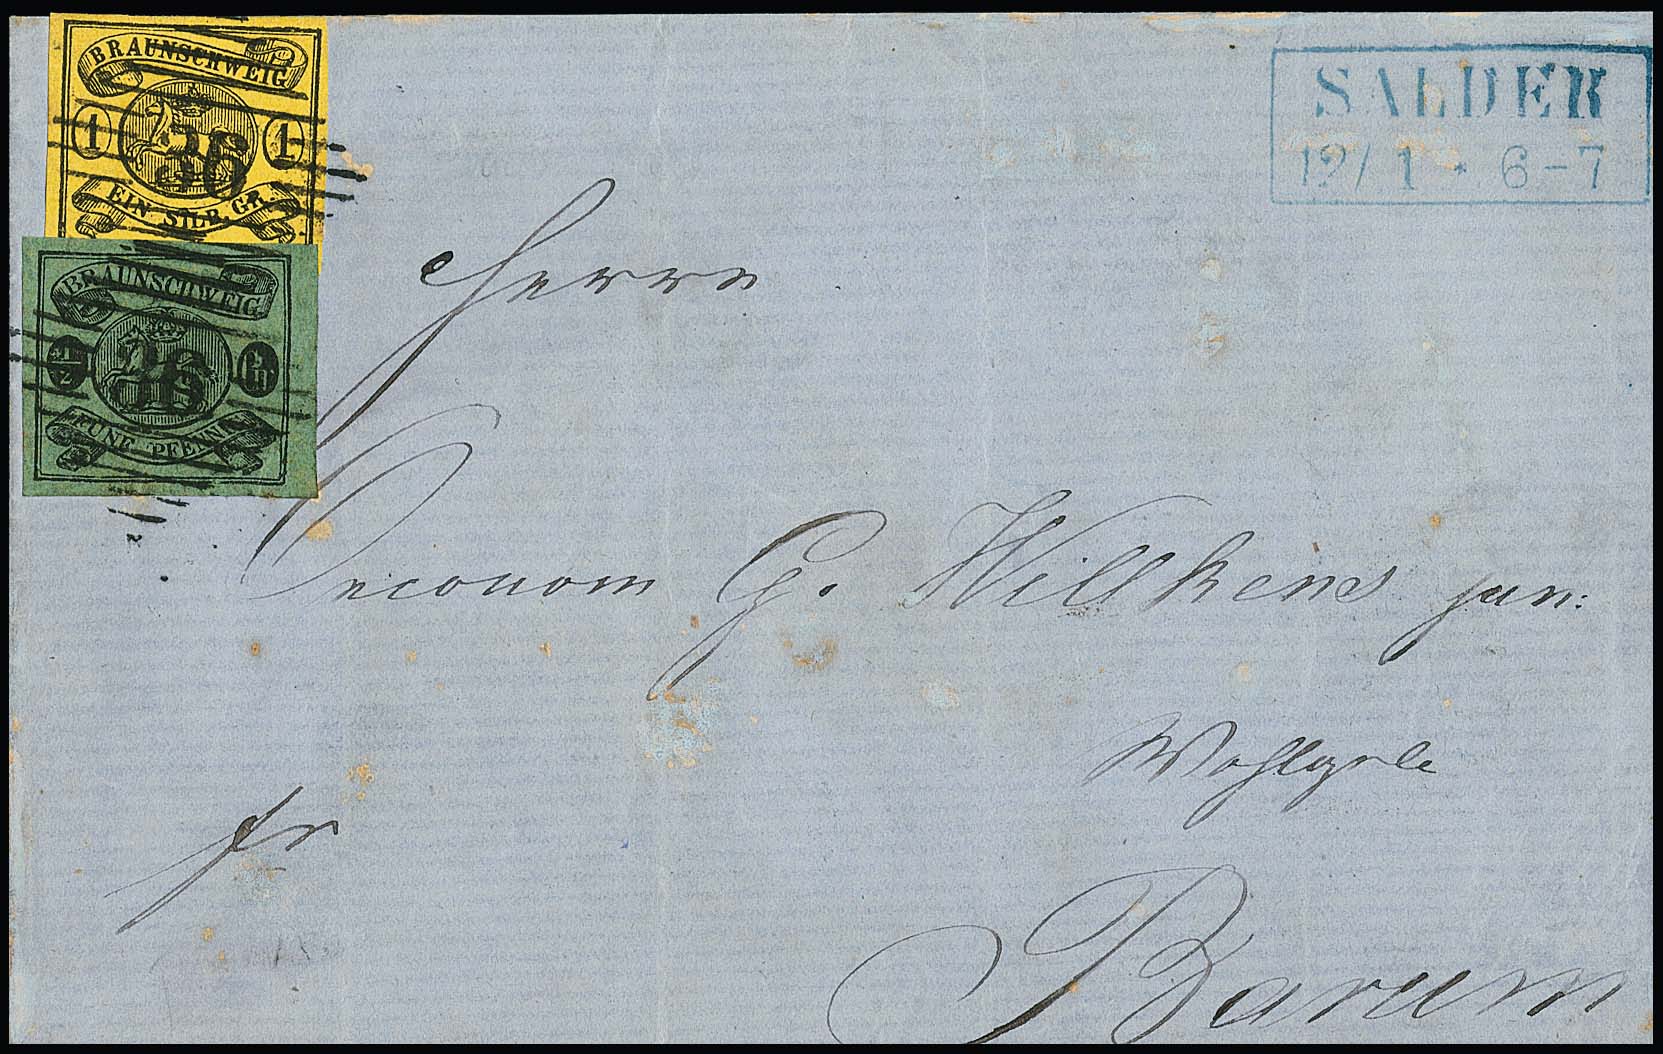 BRAUNSCHWEIG
1 1
36
EIN SILB. GR.
BRAUNSCHWEIG
1/2
36
FÜNF PFENN
SALDER
12/1 * 6-7
Herrn
Oeconom G. Willkens jun:
Barum
fr